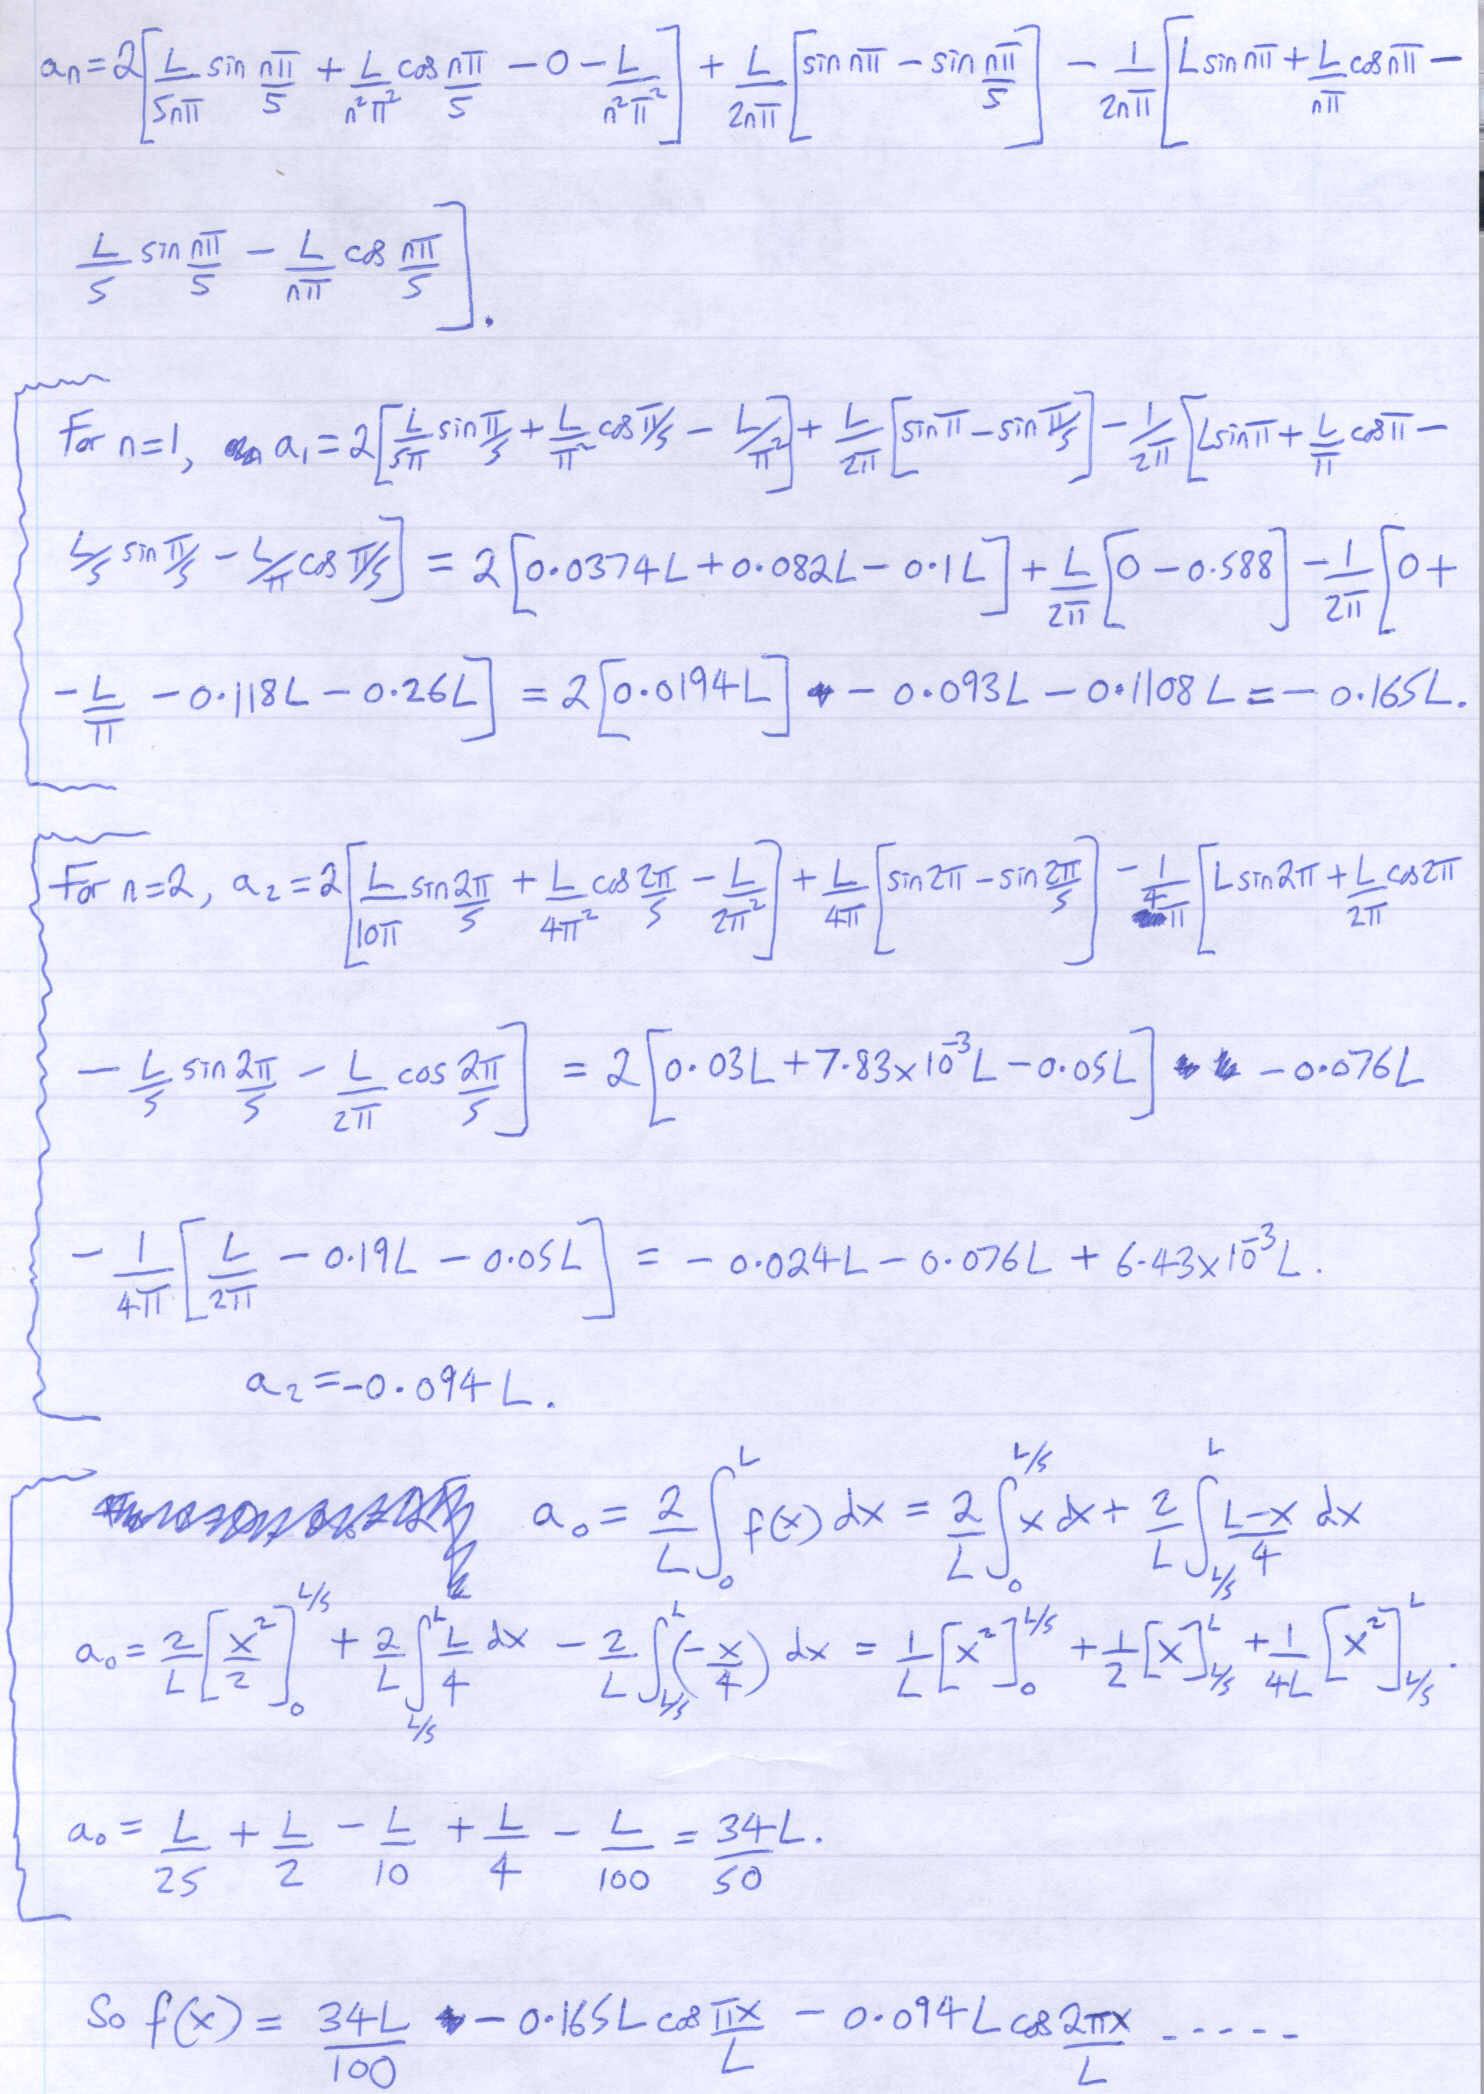 aₙ = 2[L/5nπ sin nπ/5 + L/n²π² cos nπ/5 − 0 − L/n²π²] + L/2nπ [sin nπ − sin nπ/5] − 1/2nπ [L sin nπ + L/nπ cos nπ −
L/5 sin nπ/5 − L/nπ cos nπ/5].
For n=1, a₁ = 2[L/5π sin π/5 + L/π² cos π/5 − L/π²] + L/2π [sin π − sin π/5] − 1/2π [L sin π + L/π cos π −
L/5 sin π/5 − L/π cos π/5] = 2[0.0374L + 0.082L − 0.1L] + L/2π [0 − 0.588] − 1/2π [0 +
− L/π − 0.118L − 0.26L] = 2[0.0194L] − 0.093L − 0.1108L = − 0.165L.
For n=2, a₂ = 2[L/10π sin 2π/5 + L/4π² cos 2π/5 − L/2π²] + L/4π [sin 2π − sin 2π/5] − 1/4π [L sin 2π + L/2π cos 2π
− L/5 sin 2π/5 − L/2π cos 2π/5] = 2[0.03L + 7.83×10⁻³L − 0.05L] − 0.076L
− 1/4π [L/2π − 0.19L − 0.05L] = − 0.024L − 0.076L + 6.43×10⁻³L.
a₂ = −0.094L.
a₀ = 2/L ∫₀ᴸ f(x) dx = 2/L ∫₀^(L/5) x dx + 2/L ∫_(L/5)^L (L−x)/4 dx
a₀ = 2/L [x²/2]₀^(L/5) + 2/L ∫_(L/5)^L L/4 dx − 2/L ∫_(L/5)^L (−x/4) dx = 1/L [x²]₀^(L/5) + 1/2 [x]_(L/5)^L + 1/4L [x²]_(L/5)^L.
a₀ = L/25 + L/2 − L/10 + L/4 − L/100 = 34L/50.
So f(x) = 34L/100 − 0.165L cos πx/L − 0.094L cos 2πx/L -----